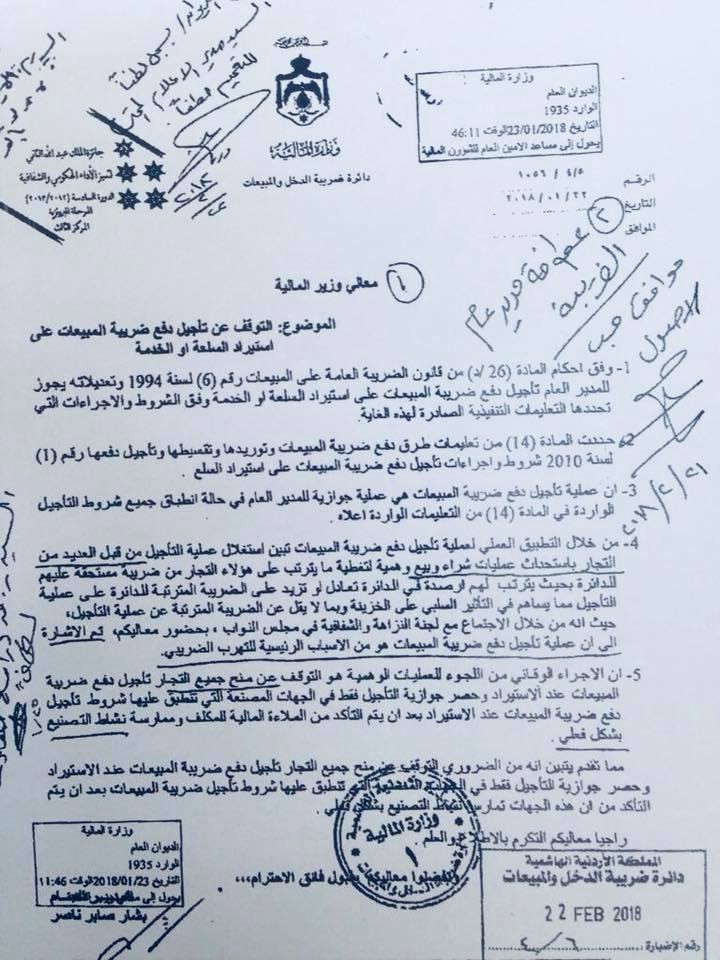 وزارة المالية
الديوان العام
الوارد 1935
التاريخ 23/01/2018 الوقت 46:11
يحول إلى مساعد الامين العام للشؤون المالية
وزارة المالية
دائرة ضريبة الدخل والمبيعات
جائزة الملك عبد الله الثاني
لتميز الأداء الحكومي والشفافية
الدورة السادسة (٢٠١٢/٢٠١٣)
المركز الثالث
الرقم ١٠٥٦ / ٤/٥
التاريخ ٢٠١٨/٠١/٢٢
الموافق
السيد مدير الاعلام
٢
عطوفة مدير عام
الضريبة
موافق حسب
الاصول
١ معالي وزير المالية
الموضوع: التوقف عن تأجيل دفع ضريبة المبيعات على
استيراد السلعة او الخدمة
1- وفق احكام المادة (26/د) من قانون الضريبة العامة على المبيعات رقم (6) لسنة 1994 وتعديلاته يجوز
للمدير العام تأجيل دفع ضريبة المبيعات على استيراد السلعة او الخدمة وفق الشروط والاجراءات التي
تحددها التعليمات التنفيذية الصادرة لهذه الغاية.
2- حددت المادة (14) من تعليمات طرق دفع ضريبة المبيعات وتوريدها وتقسيطها وتأجيل دفعها رقم (1)
لسنة 2010 شروط واجراءات تأجيل دفع ضريبة المبيعات على استيراد السلع .
3- ان عملية تأجيل دفع ضريبة المبيعات هي عملية جوازية للمدير العام في حالة انطباق جميع شروط التأجيل
الواردة في المادة (14) من التعليمات الواردة اعلاه .
4- من خلال التطبيق العملي لعملية تأجيل دفع ضريبة المبيعات تبين استغلال عملية التأجيل من قبل العديد من
التجار باستحداث عمليات شراء وبيع وهمية لتغطية ما يترتب على هؤلاء التجار من ضريبة مستحقة عليهم
للدائرة بحيث يترتب لهم ارصدة في الدائرة تعادل او تزيد على الضريبة المترتبة للدائرة على عملية
التأجيل مما يساهم في التأثير السلبي على الخزينة وبما لا يقل عن الضريبة المترتبة عن عملية التأجيل،
حيث انه من خلال الاجتماع مع لجنة النزاهة والشفافية في مجلس النواب ، بحضور معاليكم، تم الاشارة
الى ان عملية تأجيل دفع ضريبة المبيعات هو من الاسباب الرئيسية للتهرب الضريبي.
5- ان الاجراء الوقائي من اللجوء للعمليات الوهمية هو التوقف عن منح جميع التجار تأجيل دفع ضريبة
المبيعات عند الاستيراد وحصر جوازية التأجيل فقط في الجهات المصنعة التي تنطبق عليها شروط تأجيل
دفع ضريبة المبيعات عند الاستيراد بعد ان يتم التأكد من الملاءة المالية للمكلف وممارسة نشاط التصنيع
بشكل فعلي .
مما تقدم يتبين انه من الضروري التوقف عن منح جميع التجار تأجيل دفع ضريبة المبيعات عند الاستيراد
وحصر جوازية التأجيل فقط في الجهات المصنعة التي تنطبق عليها شروط تأجيل ضريبة المبيعات بعد ان يتم
التأكد من ان هذه الجهات تمارس نشاط التصنيع بشكل فعلي .
راجيا معاليكم التكرم بالاطلاع والعلم .
وتفضلوا معاليكم بقبول فائق الاحترام،،،
وزارة المالية
١
وزارة المالية
الديوان العام
الوارد 1935
التاريخ 2018/01/23 الوقت 11:46
بشار صابر ناصر
المملكة الأردنية الهاشمية
دائرة ضريبة الدخل والمبيعات
22 FEB 2018
رقم الإضبارة: ٤/٦